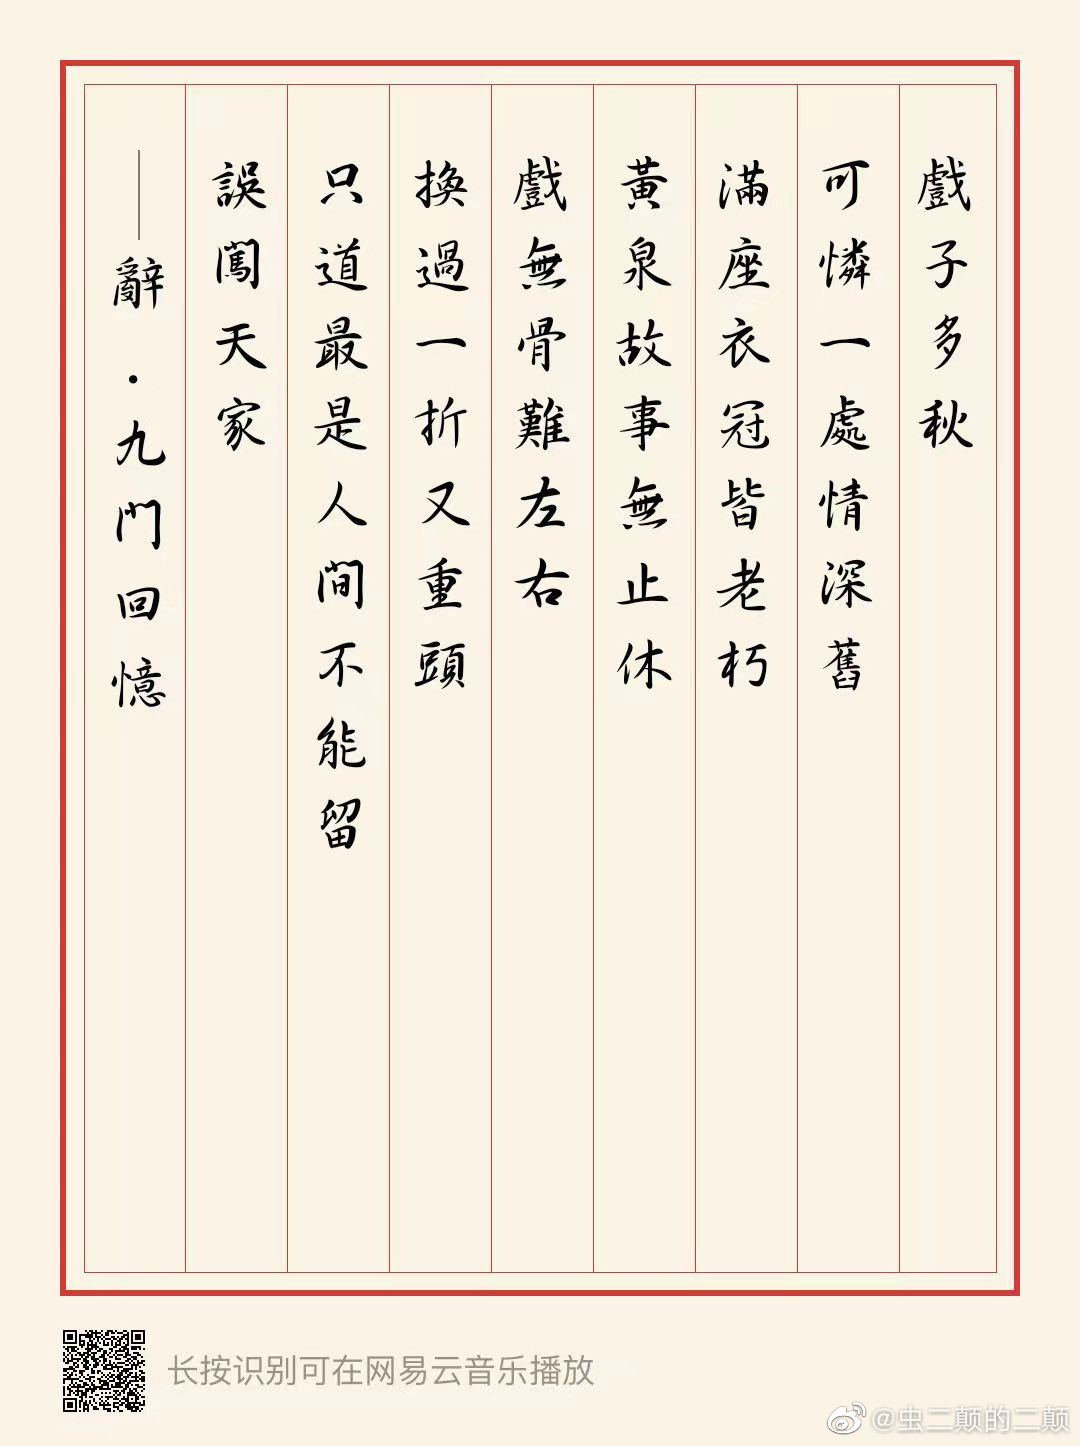 戲子多秋
可憐一處情深舊
滿座衣冠皆老朽
黃泉故事無止休
戲無骨難左右
換過一折又重頭
只道最是人間不能留
誤闖天家
——辭·九門回憶
长按识别可在网易云音乐播放
@虫二颠的二颠